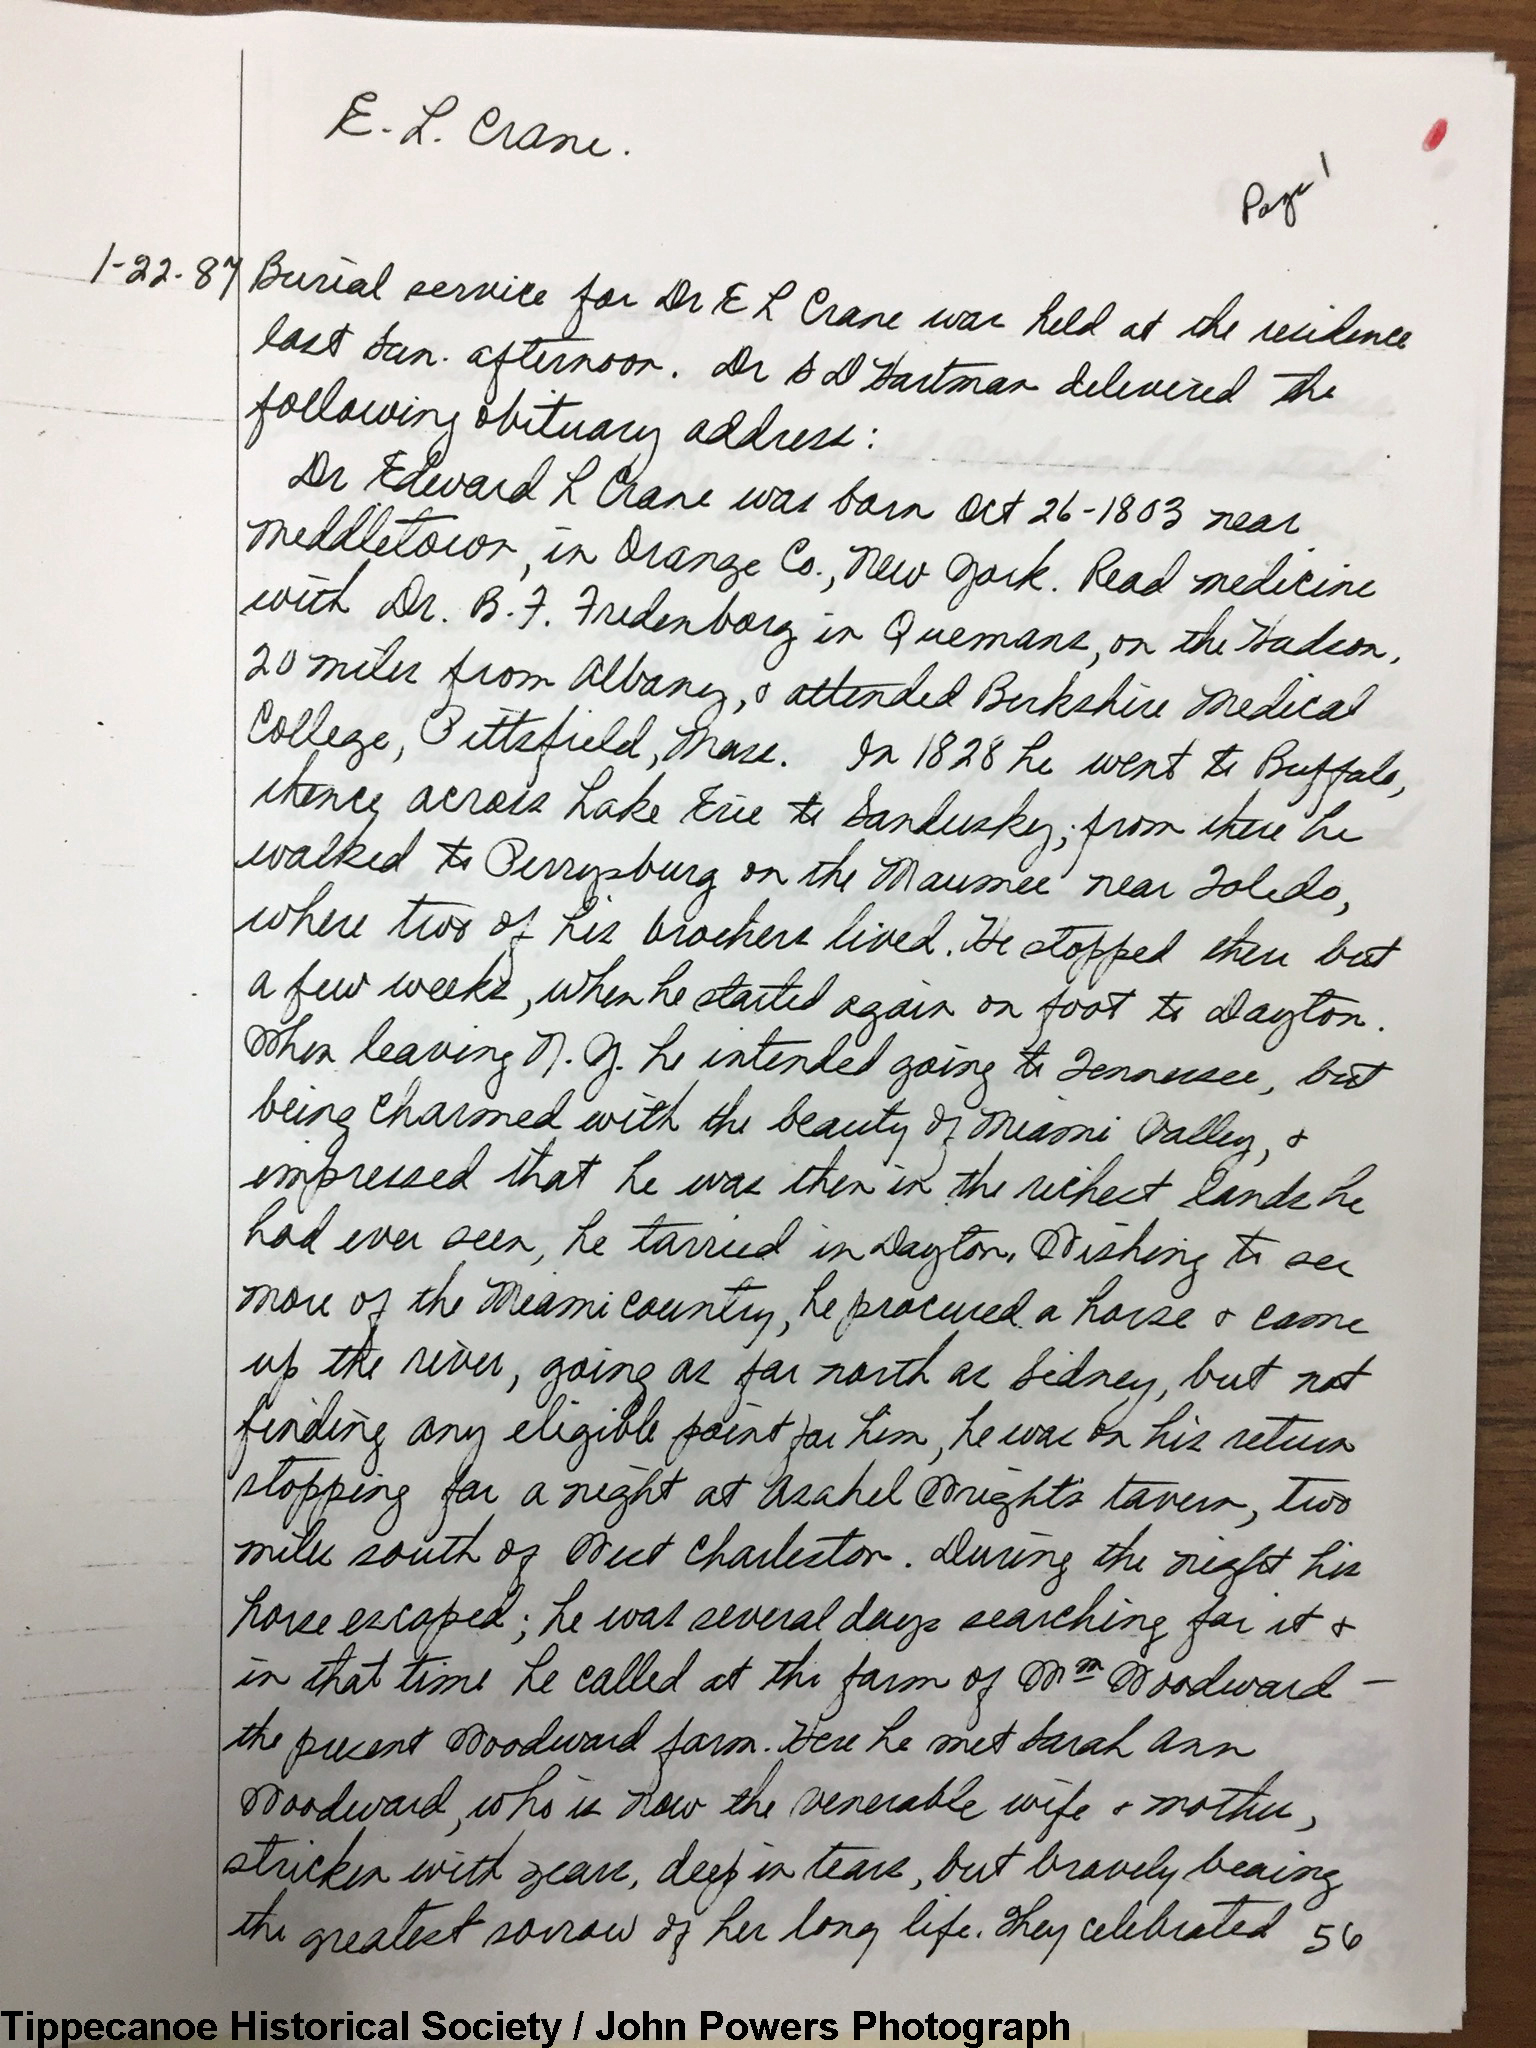 E. L. Crane.
Page 1
1-22-87 Burial service for Dr E L Crane was held at the residence
last Sun. afternoon. Dr S D Hartman delivered the
following obituary address:
Dr Edward L Crane was born Oct 26-1803 near
Middletown, in Orange Co., New York. Read medicine
with Dr. B. F. Fredenborg in Quemans, on the Hudson,
20 miles from Albany, & attended Berkshire Medical
College, Pittsfield, Mass. In 1828 he went to Buffalo,
thence across Lake Erie to Sandusky; from there he
walked to Perrysburg on the Maumee near Toledo,
where two of his brothers lived. He stopped there but
a few weeks, when he started again on foot to Dayton.
When leaving N. Y. he intended going to Tennessee, but
being charmed with the beauty of Miami Valley, &
impressed that he was then in the richest lands he
had ever seen, he tarried in Dayton. Wishing to see
more of the Miami country, he procured a horse & came
up the river, going as far north as Sidney, but not
finding any eligible point for him, he was on his return
stopping for a night at Asahel Wright's tavern, two
miles south of West Charleston. During the night his
horse escaped; he was several days searching for it &
in that time he called at the farm of Wm Woodward -
the present Woodward farm. Here he met Sarah Ann
Woodward, who is now the venerable wife & mother,
stricken with years, deep in tears, but bravely bearing
the greatest sorrow of her long life. They celebrated 56
Tippecanoe Historical Society / John Powers Photograph